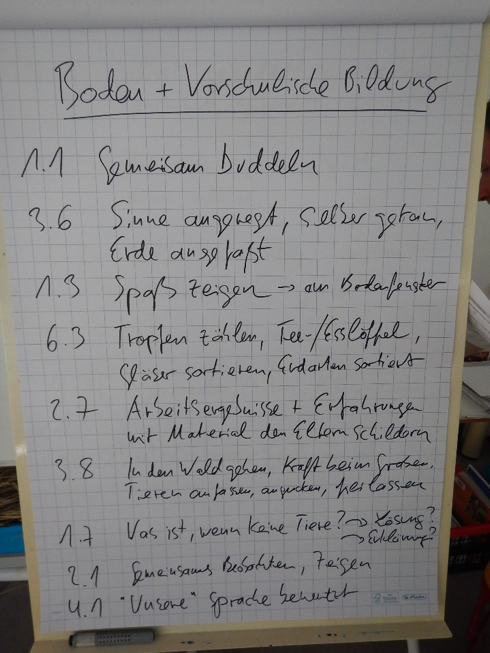 Boden + Vorschulische Bildung
1.1 Gemeinsam Buddeln
3.6 Sinne angeregt, selber getan,
Erde angefaßt
1.3 Spaß zeigen → am Bodenfenster
6.3 Tropfen zählen, Tee-/Esslöffel,
Gläser sortieren, Erdarten sortiert
2.7 Arbeitsergebnisse + Erfahrungen
mit Material den Eltern schildern
3.8 In den Wald gehen, Kraft beim Graben,
Tieren anfassen, angucken, freilassen
1.7 Was ist, wenn keine Tiere? → Lösung?
→ Erklärung?
2.1 Gemeinsames Beobachten, Zeigen
4.1 "Unsere" Sprache benutzt